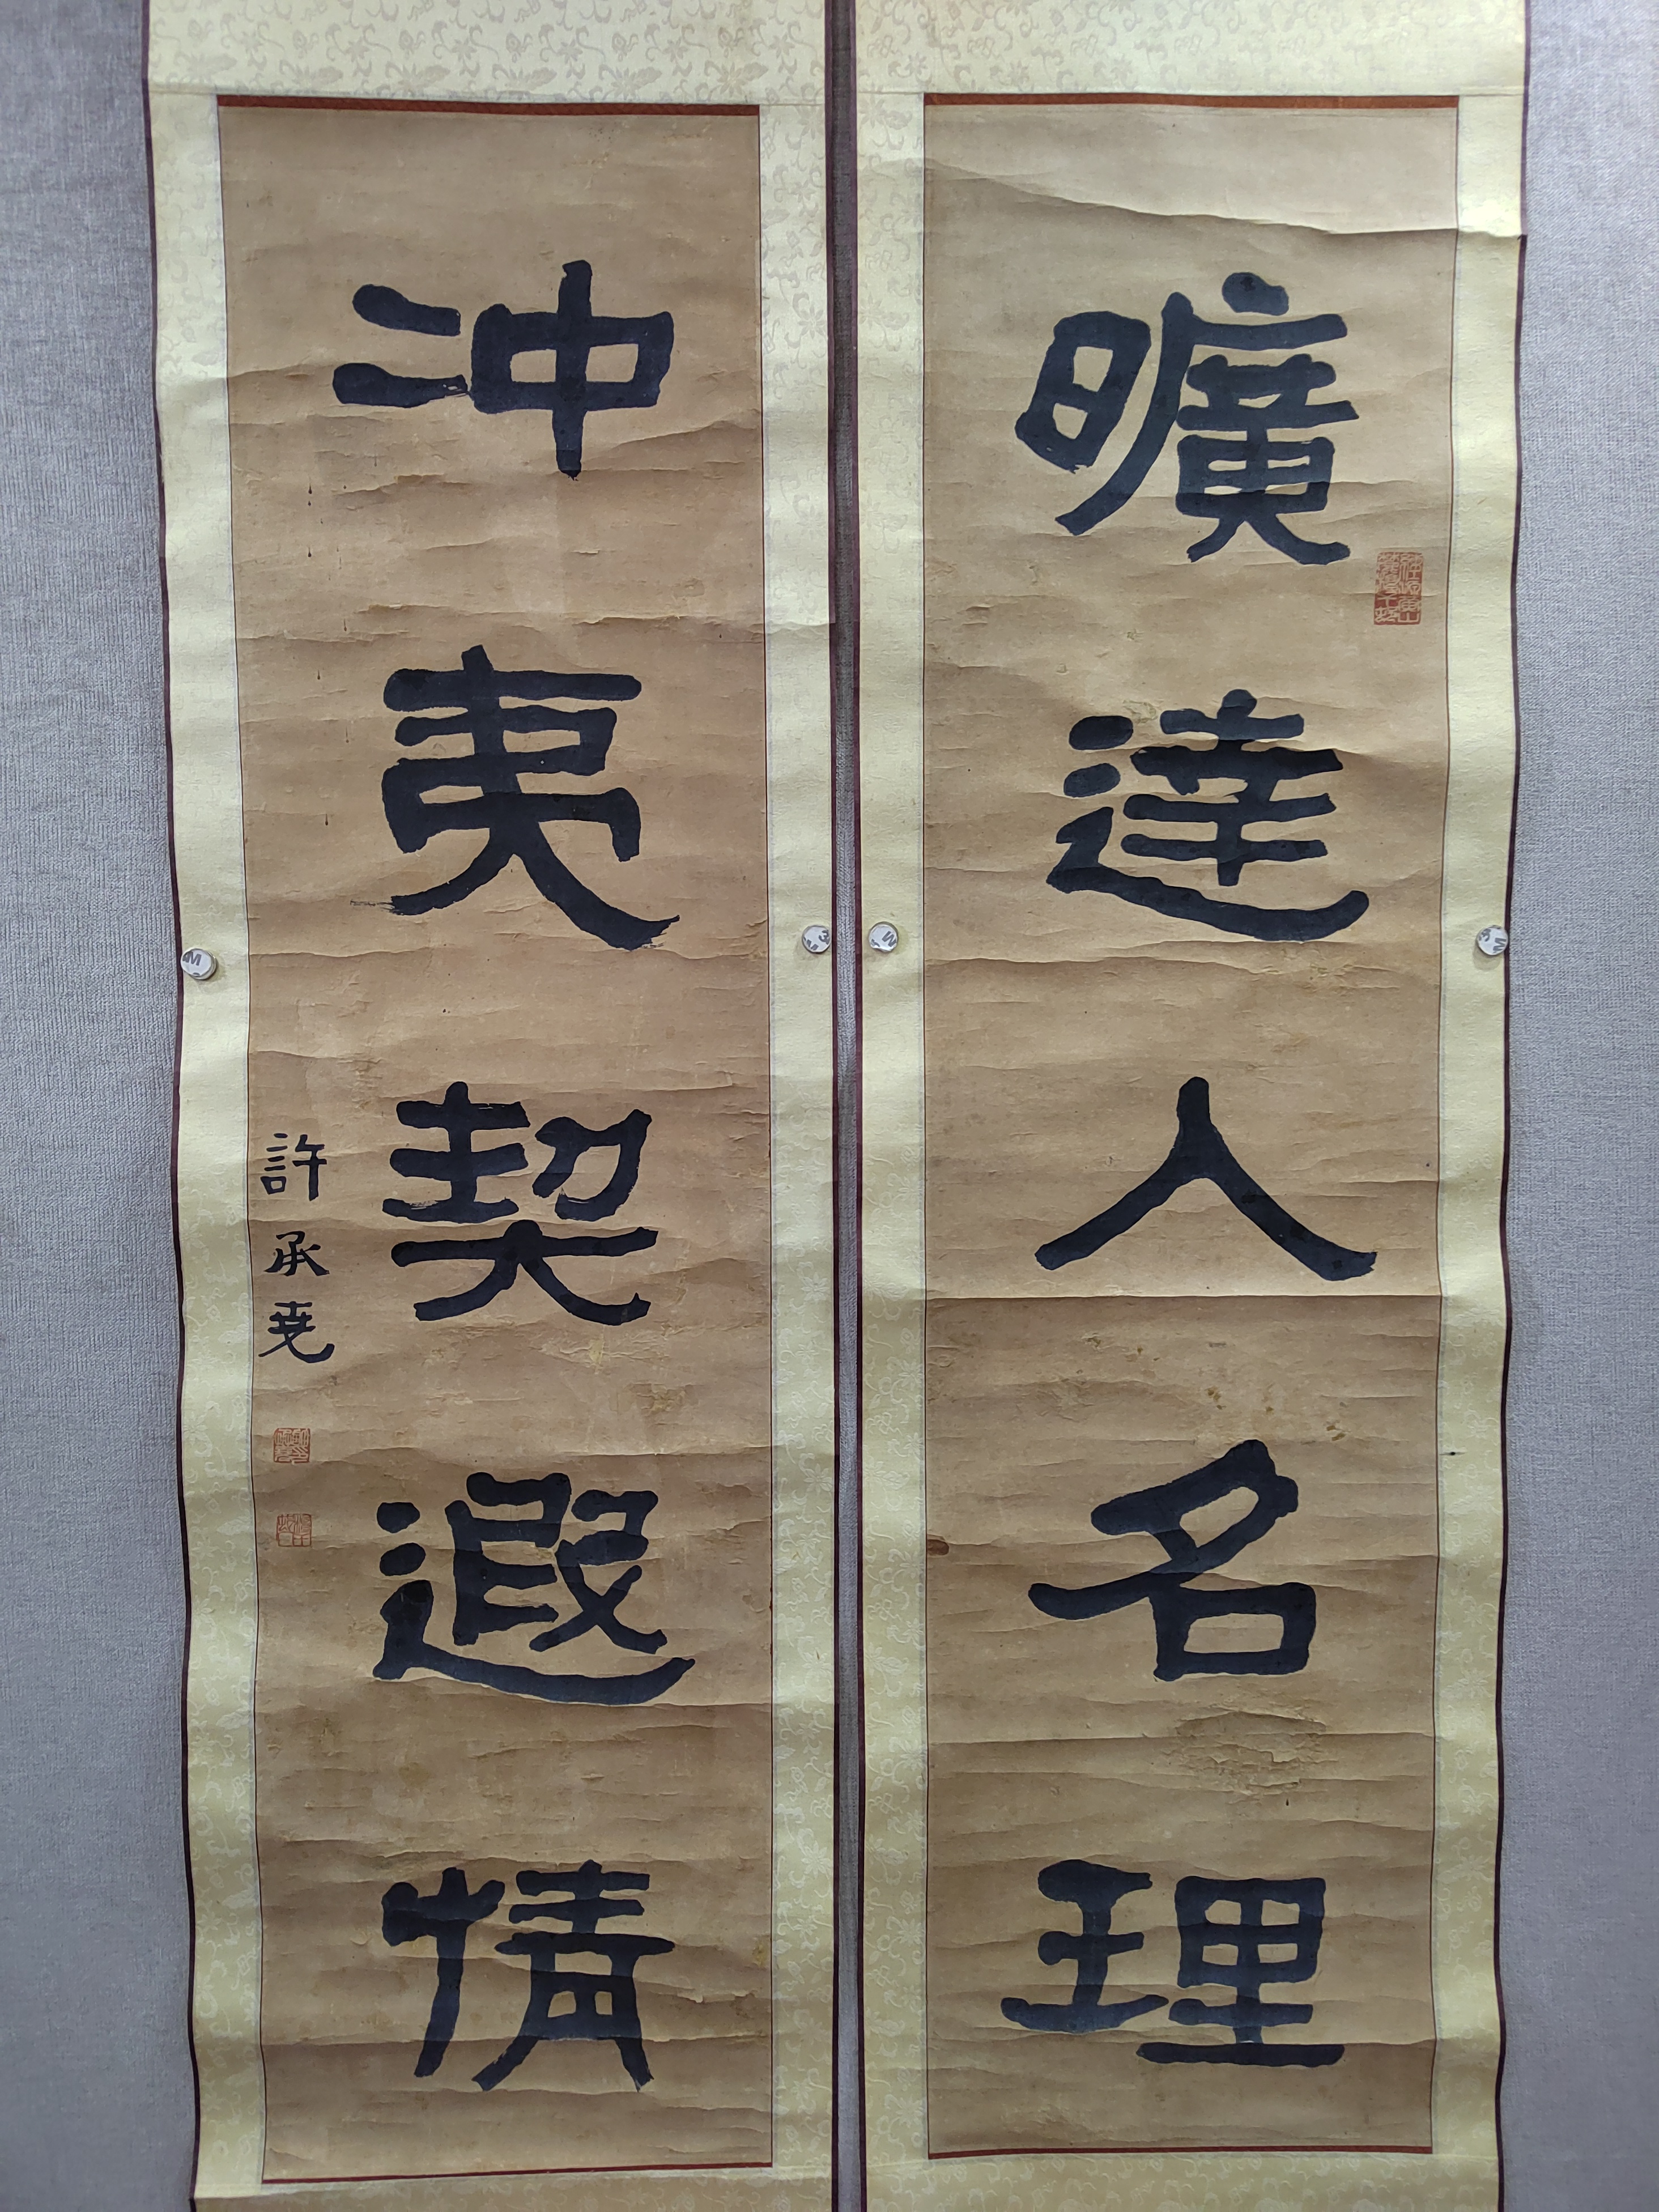 曠達人名理
沖夷契遐情
許承堯